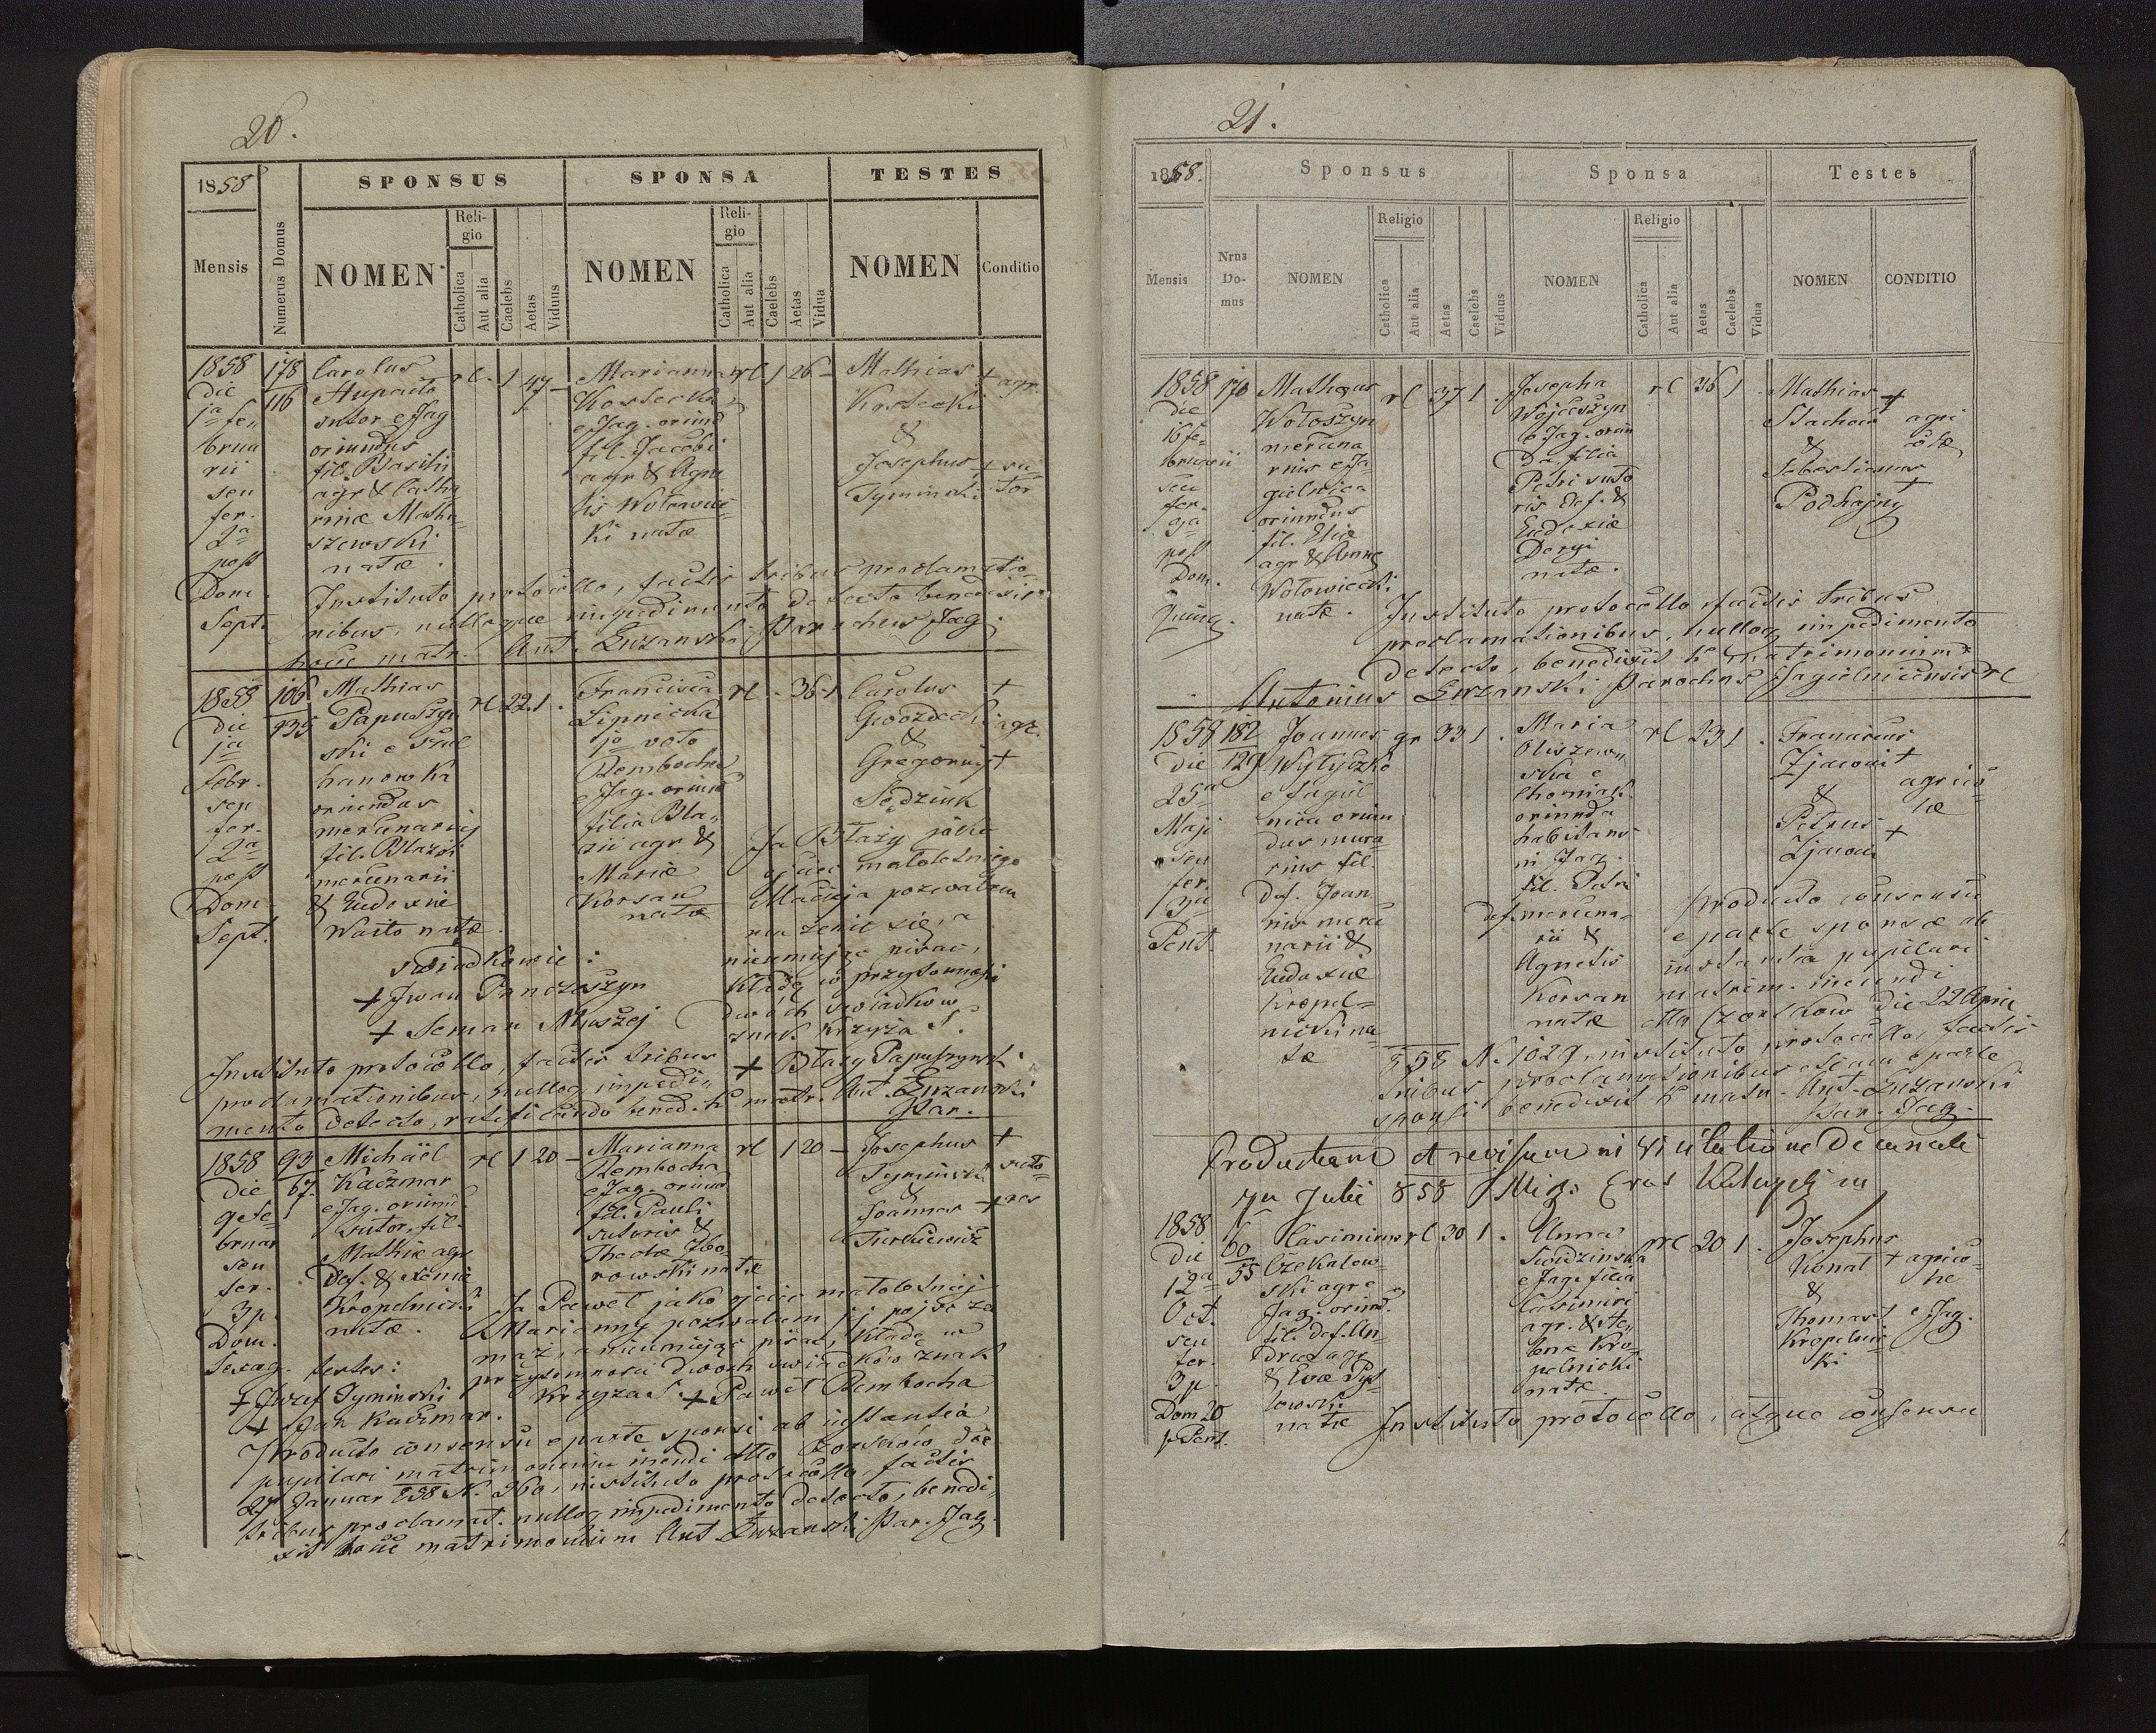 20.
1858
SPONSUS
SPONSA
TESTES
Mensis
Numerus Domus
NOMEN
Reli-
gio
Catholica
Aut alia
Caelebs
Aetas
Viduus
NOMEN
Reli-
gio
Catholica
Aut alia
Caelebs
Aetas
Vidua
NOMEN
Conditio
1858
Die
1a fe„
brua
rii
seu
fer.
2a
post
Dom.
Sept.
178
116
Carolus
sutor e Jag
oriundus
fil. Basilii
agr & Catha
rinæ Matha„
szewski
natæ.
rl. 1 47 –
Marianna
Kostecka
e Jag. oriund
fil. Jacobi
agr & Agne
tis Wołowiec„
ki natæ
rl 1 26 –
Mathias
Kostecki
&
Josephus
Tyminski
+ agr.
+ su
tor
Instituto protocollo, factis tribus proclamatio
nibus, nulloque impedimento detecto benedixit
hocce matr. Ant. Luzanski Parochus Jag.
1858
die
1a
Febr.
seu
fer.
2a
post
Dom
Sept.
106
235
Mathias
Papuszyn
ski e Szul
hanowka
oriundus
mercenarius
fil. Blazii
mercenarii
& Eudoxiæ
Waito natæ.
rl 22 1 .
Francisca
Lipnicka
1o voto
Rembocha
e Jag. oriund
filia Bla„
zii agr &
Mariæ
Korsan
natæ
rl . 36 1
Carolus
Gwozdecki
&
Gregorius
Sędziuk
+
agr.
+
Ja Błazy jako
ojciec małoletniego
Macieja pozwalam
mu zenic się, a
nieumiejąc pisac,
kładę w przytomnosci
dwóch swiadkow
znak krzyża S.
+ Błazy Papuszynski
swiadkowie :
+ Iwan Panczaszyn
+ Seman Muszej
Instituto protocollo, factis tribus
proclamationibus, nulloq impedi„
mento detecto, ratificando bened. h. matr. Ant. Luzanski
Par.
1858
Die
9 Fe„
bruar
seu
fer.
3 p.
Dom.
Sexag.
93
67.
Michaël
Kaczmar
e Jag. oriund.
sutor, fil.
Mathiæ agr
def. & Xeniæ
Kropelnicki
natæ.
rl 1 20 –
Marianna
Rembocha
e Jag. oriun
fil. Pauli
sutoris &
Theclæ Zbo„
rowski natæ
rl 1 20 –
Josephus
Tyminski
&
Joannes
Turkiewicz
+
suto„
+ res
Ja Paweł jako ojciec małoletniej
Marianny pozwalam jej pojść za
maż, a nieumiejąc pisac, kładę w
przytomnosci dwoch swiadkow znak
krzyża S. + Paweł Rembocha
testes :
+ Jozef Tyminski
+ Jan Kaczmar.
Producto consensu e parte sponsi ab instantia
pupilari matrimonium ineundi dtto Czortkow die
27 Januar 858 N. 260, instituto protocollo, factis
tribus proclamat. nulloq impedimento detecto, benedi„
xit hocce matrimonium Ant. Luzanski Par. Jag.
21.
1858.
Sponsus
Sponsa
Testes
Mensis
Nrus
Do-
mus
NOMEN
Religio
Catholica
Aut alia
Aetas
Caelebs
Viduus
NOMEN
Religio
Catholica
Aut alia
Aetas
Caelebs
Vidua
NOMEN
CONDITIO
1858
Die
16 fe„
bruarii
seu
fer.
post
Dom.
Quinq.
170
Matheus
Wołoszyn
mercena
rius e Ja
gielnica
oriundus
fil. Eliæ
agr & Annæ
Wołowiecki
natæ.
rl 37 1 .
Josepha
Wojciszyn
e Jag. oriun
da filia
Petri suto
ris def. &
Eudoxiæ
Dergi
natæ.
rl 36 1 .
Mathias
Stachow
&
Sebestianus
Podhajny
+
agri
colæ
+
Instituto protocollo factis tribus
proclamationibus, nulloq impedimento
detecto, benedixit h. matrimonium
Antonius Luzanski Parochus Jagielnicensis rl
1858
Die
25a
Maji
seu
fer.
3a
Pent.
182
129
Joannes
Wytyczko
e Jagiel
nica oriun
dus mura
rius fil.
def. Joan
nis merce
narii &
Eudoxiæ
Kropel„
nicki na
tæ
gr 33 1 .
Maria
Oliszew„
ska e
Chomiak.
oriunda
habitans
in Jag.
fil. Petri
def. mercena„
rii &
Agnetis
Korsan
natæ
rl 23 1 .
Franciscus
Zjawin
&
Petrus
Zjawin
+
agrico
læ
+
Producto consensu
e parte sponsæ ab
instantia pupilari
matrim. ineundi
dtto Czortkow die 22 April
858 N. 1029, instituto protocollo, factis
tribus proclamationibus etiam e parte
sponsi benedixit h. matr. Ant. Luzanski
Par. Jag.
Productum et revisum in visitatione Decanali
7a Julii 858
1858
Die
12a
Oct.
seu
fer.
3 p.
Dom 20
p. Pent.
60
55
Casimirus
Czekalow„
ski agr e
Jag. oriund.
fil. def. An„
dreæ agr
& Evæ Pys„
towski
natæ
rl 30 1 .
Anna
Swidzinska
e Jag. filia
Casimiri
agr. & He„
lenæ Kro„
pelnicki
natæ.
rl 20 1 .
Josephus
Konat
&
Thomas
Kropelnic„
ki
+ agrico
læ
+ e Jag.
Instituto protocollo, atque consensu